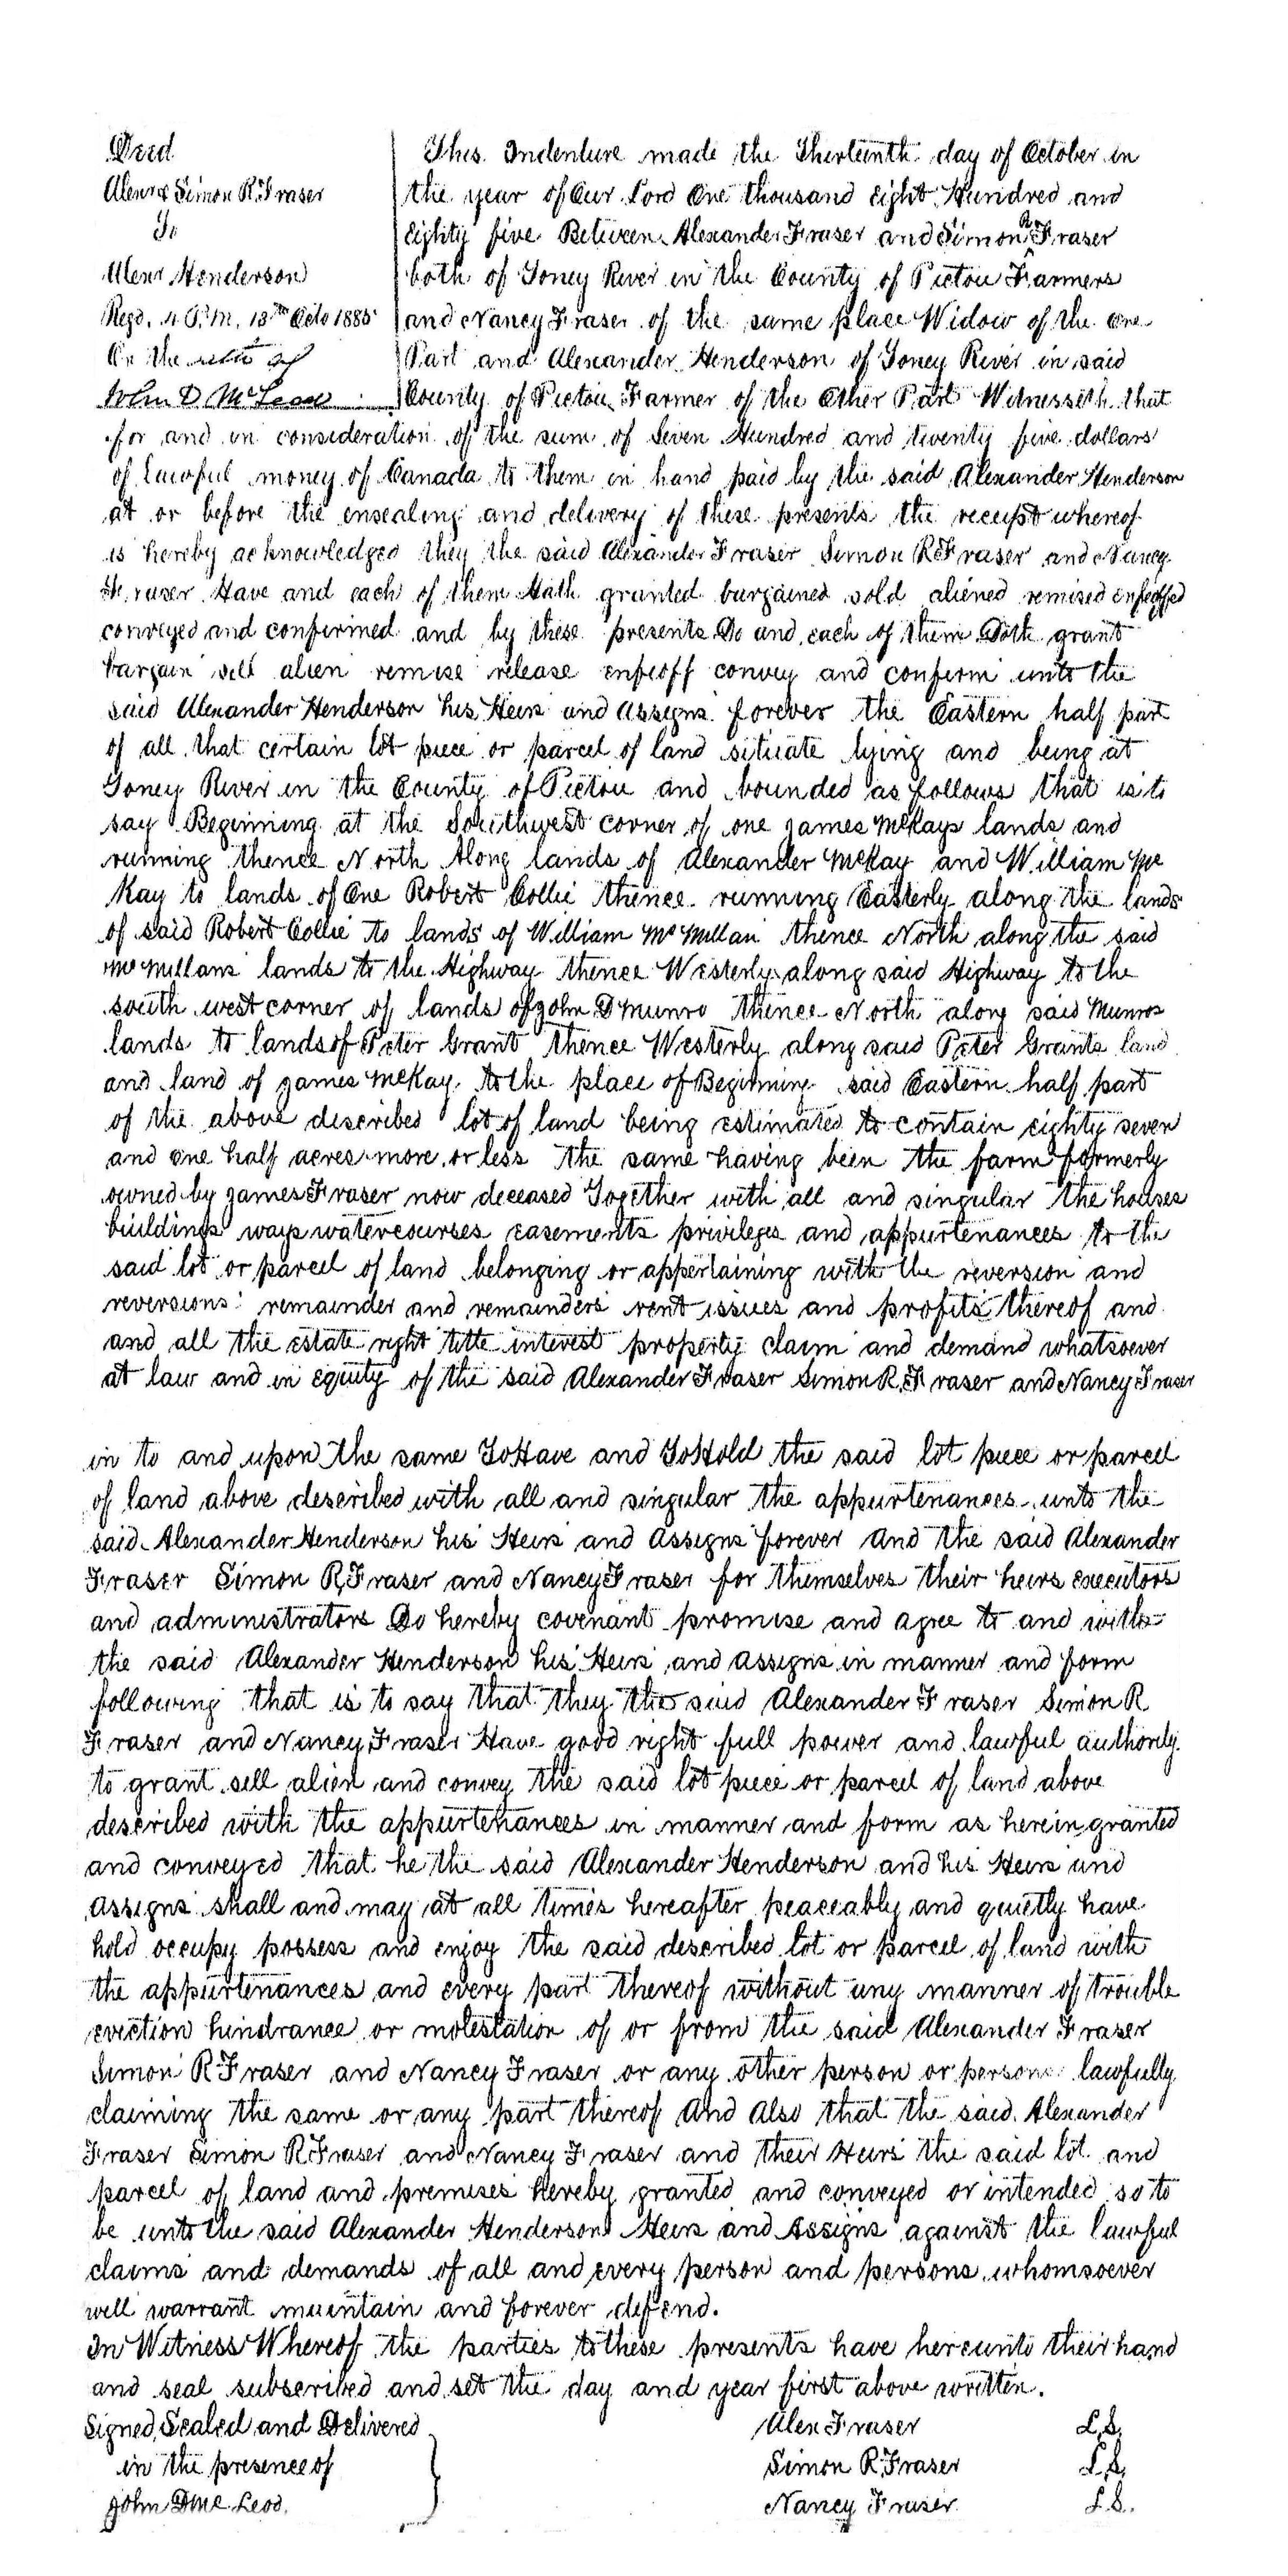 Deed
Alexr & Simon R. Fraser
To
Alexr Henderson
Regd. 4 P.M. 13th Octo 1885
On the oath of
John D McLeod
This Indenture made the Thirteenth day of October in
the year of Our Lord One thousand Eight Hundred and
Eighty five Between Alexander Fraser and Simon R Fraser
both of Toney River in the County of Pictou Farmers
and Nancy Fraser of the same place Widow of the One
Part and Alexander Henderson of Toney River in said
County of Pictou Farmer of the Other Part Witnesseth that
for and in consideration of the sum of Seven Hundred and twenty five dollars
of lawful money of Canada to them in hand paid by the said Alexander Henderson
at or before the ensealing and delivery of these presents the receipt whereof
is hereby acknowledged they the said Alexander Fraser Simon R Fraser and Nancy
Fraser Have and each of them Hath granted bargained sold aliened remised enfeoffed
conveyed and confirmed and by these presents Do and each of them Doth grant
bargain sell alien remise release enfeoff convey and confirm unto the
said Alexander Henderson his Heirs and Assigns forever the Eastern half part
of all that certain lot piece or parcel of land situate lying and being at
Toney River in the County of Pictou and bounded as follows that is to
say Beginning at the Southwest corner of one James McKays lands and
running thence North Along lands of Alexander McKay and William Mc
Kay to lands of One Robert Collie thence running Easterly along the lands
of said Robert Collie to lands of William McMillan thence North along the said
McMillans lands to the Highway thence Westerly along said Highway to the
south west corner of lands of John D Munro thence North along said Munros
lands to lands of Peter Grant thence Westerly along said Peter Grants land
and land of James McKay to the place of Beginning said Eastern half part
of the above described lot of land being estimated to contain eighty seven
and one half acres more or less the same having been the farm formerly
owned by James Fraser now deceased Together with all and singular the houses
buildings ways watercourses easements privileges and appurtenances to the
said lot or parcel of land belonging or appertaining with the reversion and
reversions remainder and remainders rent issues and profits thereof and
and all the estate right title interest property claim and demand whatsoever
at law and in equity of the said Alexander Fraser Simon R. Fraser and Nancy Fraser
in to and upon the same To Have and To Hold the said lot piece or parcel
of land above described with all and singular the appurtenances unto the
said Alexander Henderson his Heirs and Assigns forever And the said Alexander
Fraser Simon R, Fraser and Nancy Fraser for themselves their heirs executors
and administrators Do hereby covenant promise and agree to and with
the said Alexander Henderson his Heirs and Assigns in manner and form
following that is to say that they the said Alexander Fraser Simon R
Fraser and Nancy Fraser Have good right full power and lawful authority
to grant sell alien and convey the said lot piece or parcel of land above
described with the appurtenances in manner and form as herein granted
and conveyed that he the said Alexander Henderson and his Heirs and
Assigns shall and may at all times hereafter peaceably and quietly have
hold occupy possess and enjoy the said described lot or parcel of land with
the appurtenances and every part thereof without any manner of trouble
eviction hindrance or molestation of or from the said Alexander Fraser
Simon R Fraser and Nancy Fraser or any other person or persons lawfully
claiming the same or any part thereof And Also that the said Alexander
Fraser Simon R Fraser and Nancy Fraser and their Heirs the said lot and
parcel of land and premises hereby granted and conveyed or intended so to
be unto the said Alexander Henderson Heirs and Assigns against the lawful
claims and demands of all and every person and persons whomsoever
will warrant maintain and forever defend.
In Witness Whereof the parties to these presents have hereunto their hand
and seal subscribed and set the day and year first above written.
Signed, Sealed and Delivered
in the presence of
John D McLeod.
Alex Fraser L.S.
Simon R, Fraser L.S.
Nancy Fraser L.S.